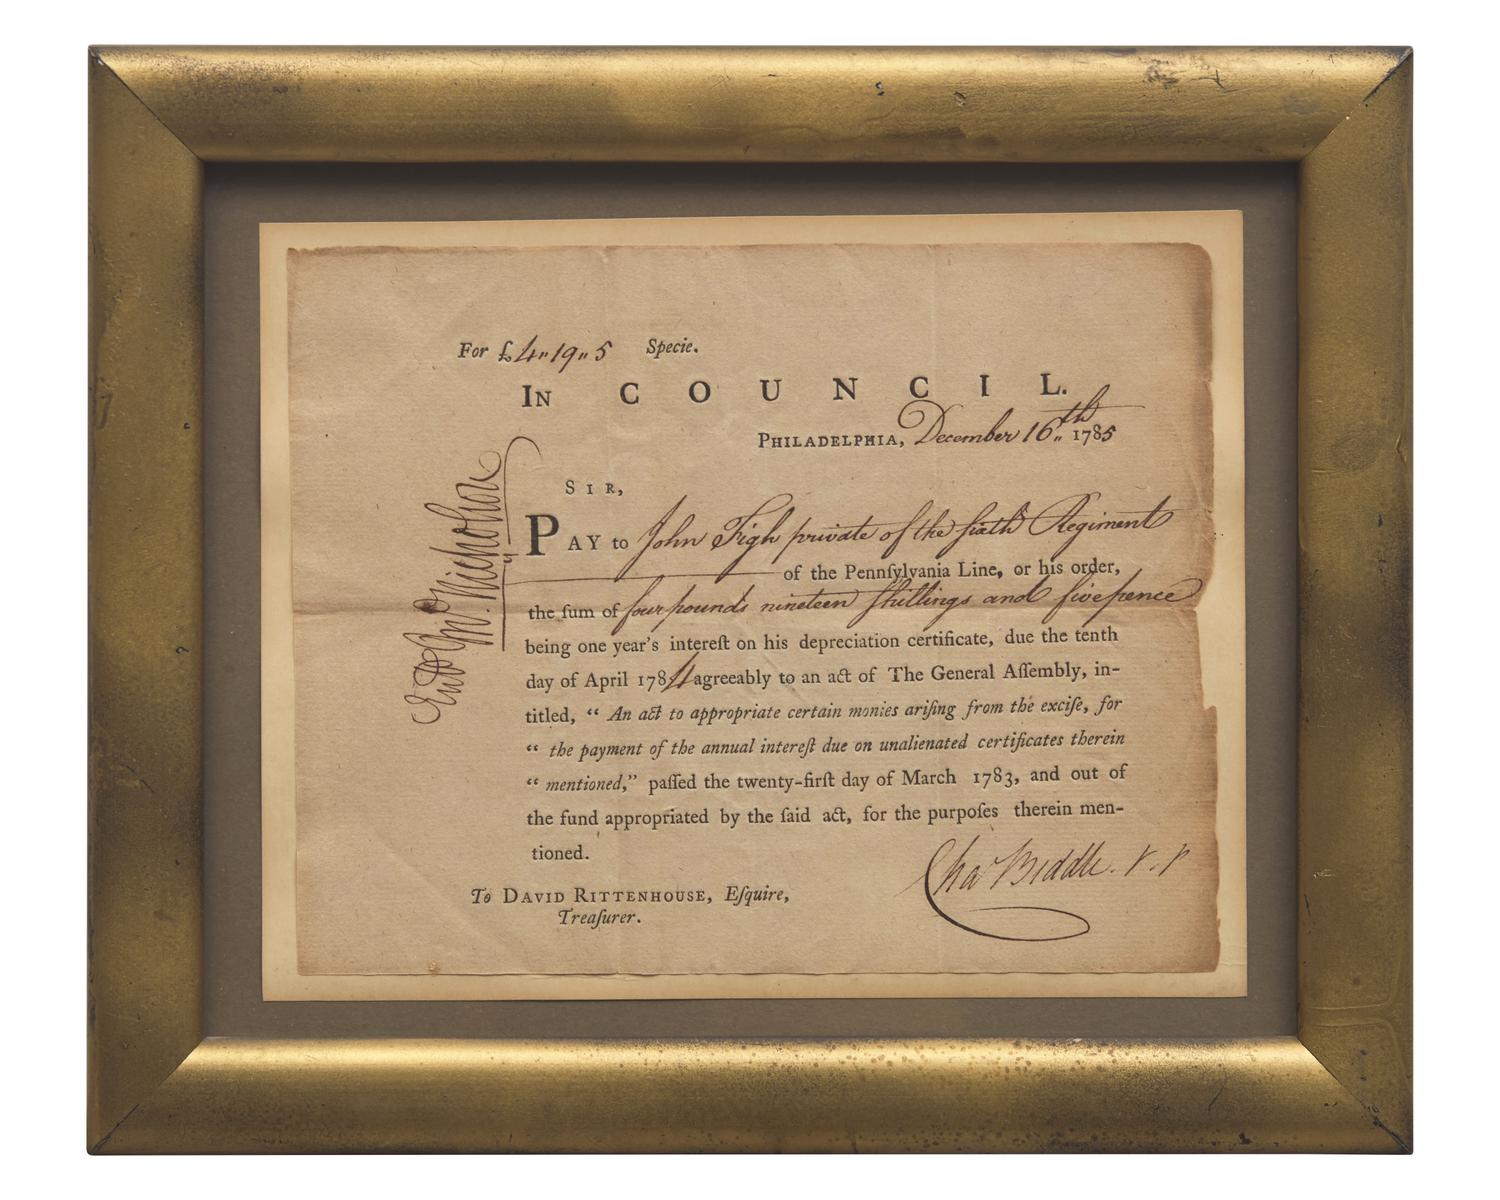 For £4"19"5 Specie.
IN COUNCIL.
PHILADELPHIA, December 16th 1785
SIR,
PAY to John Tigh private of the sixth Regiment
of the Pennſylvania Line, or his order,
the ſum of four pounds nineteen ſhillings and five pence
being one year's intereſt on his depreciation certificate, due the tenth
day of April 1784 agreeably to an act of The General Aſſembly, in-
titled, “ An act to appropriate certain monies ariſing from the exciſe, for
“ the payment of the annual intereſt due on unalienated certificates therein
“ mentioned,” paſſed the twenty-firſt day of March 1783, and out of
the fund appropriated by the ſaid act, for the purpoſes therein men-
tioned.
Cha Biddle. V. P
To DAVID RITTENHOUSE, Eſquire,
Treaſurer.
Entd Jno. Nicholson